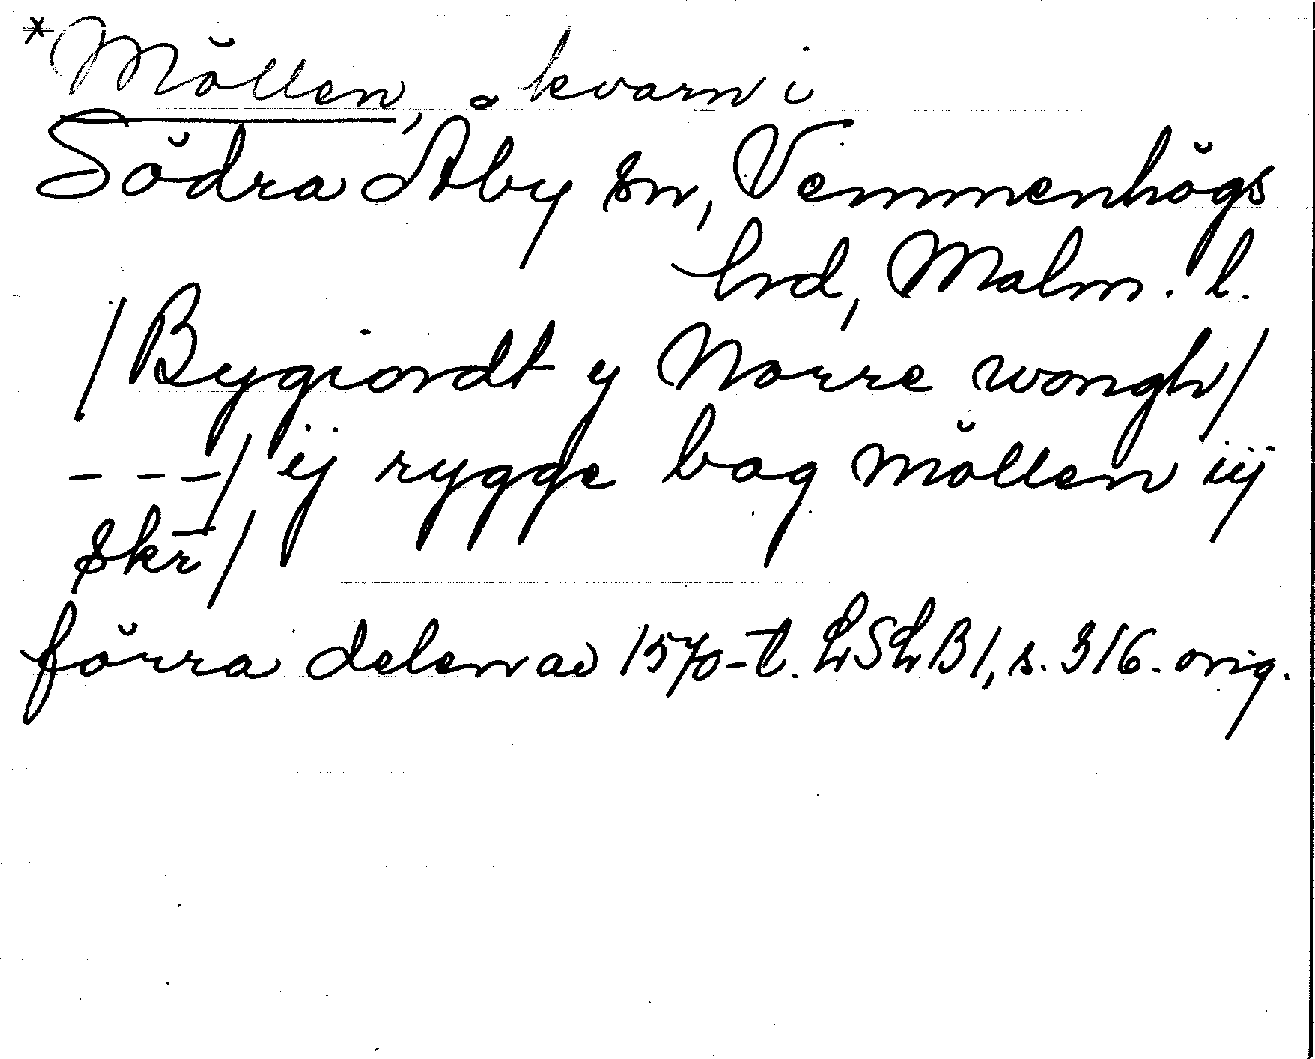 *Möllen, kvarn i
Södra Åby sn, Vemmenhögs
hrd, Malm. l.
/Bygiordt y Norre wongh/
- - -/ ij rygge bag möllen iij
skr/
förra delen av 1570-t. LSLB1, s. 316. orig.